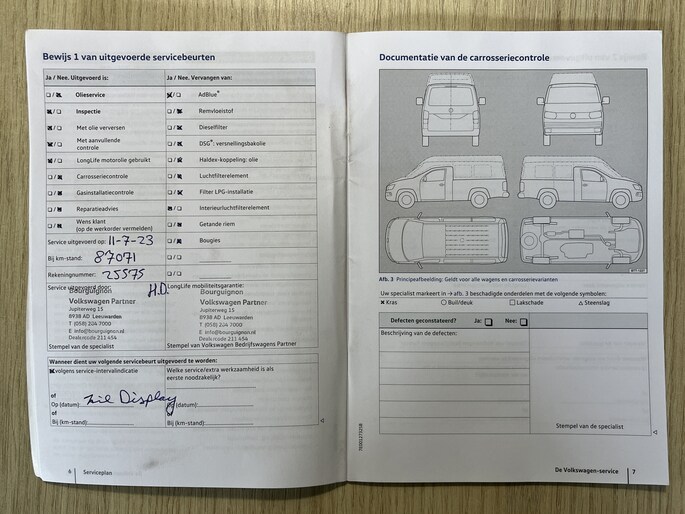 Bewijs 1 van uitgevoerde servicebeurten
Ja / Nee. Uitgevoerd is:
Olieservice
Inspectie
Met olie verversen
Met aanvullende
controle
LongLife motorolie gebruikt
Carrosseriecontrole
Gasinstallatiecontrole
Reparatieadvies
Wens klant
(op de werkorder vermelden)
Ja / Nee. Vervangen van:
AdBlue®
Remvloeistof
Dieselfilter
DSG®: versnellingsbakolie
Haldex-koppeling: olie
Luchtfilterelement
Filter LPG-installatie
Interieurluchtfilterelement
Getande riem
Bougies
Service uitgevoerd op: 11-7-23
Bij km-stand: 87071
Rekeningnummer: 25575
Service uitgevoerd door: H.D.
Bourguignon
Volkswagen Partner
Jupiterweg 15
8938 AD Leeuwarden
T (058) 204 7000
E info@bourguignon.nl
Dealercode 211 454
Stempel van de specialist
LongLife mobiliteitsgarantie:
Bourguignon
Volkswagen Partner
Jupiterweg 15
8938 AD Leeuwarden
T (058) 204 7000
E info@bourguignon.nl
Dealercode 211 454
Stempel van Volkswagen Bedrijfswagens Partner
Wanneer dient uw volgende servicebeurt uitgevoerd te worden:
volgens service-intervalindicatie
of
Op (datum): zie Display
of
Bij (km-stand):
Welke service/extra werkzaamheid is als
eerste noodzakelijk?
Op (datum):
of
Bij (km-stand):
6 Serviceplan
Documentatie van de carrosseriecontrole
Afb. 3 Principeafbeelding: Geldt voor alle wagens en carrosserievarianten
Uw specialist markeert in →afb. 3 beschadigde onderdelen met de volgende symbolen:
× Kras ○ Buil/deuk □ Lakschade △ Steenslag
Defecten geconstateerd? Ja: Nee:
Beschrijving van de defecten:
Stempel van de specialist
De Volkswagen-service 7